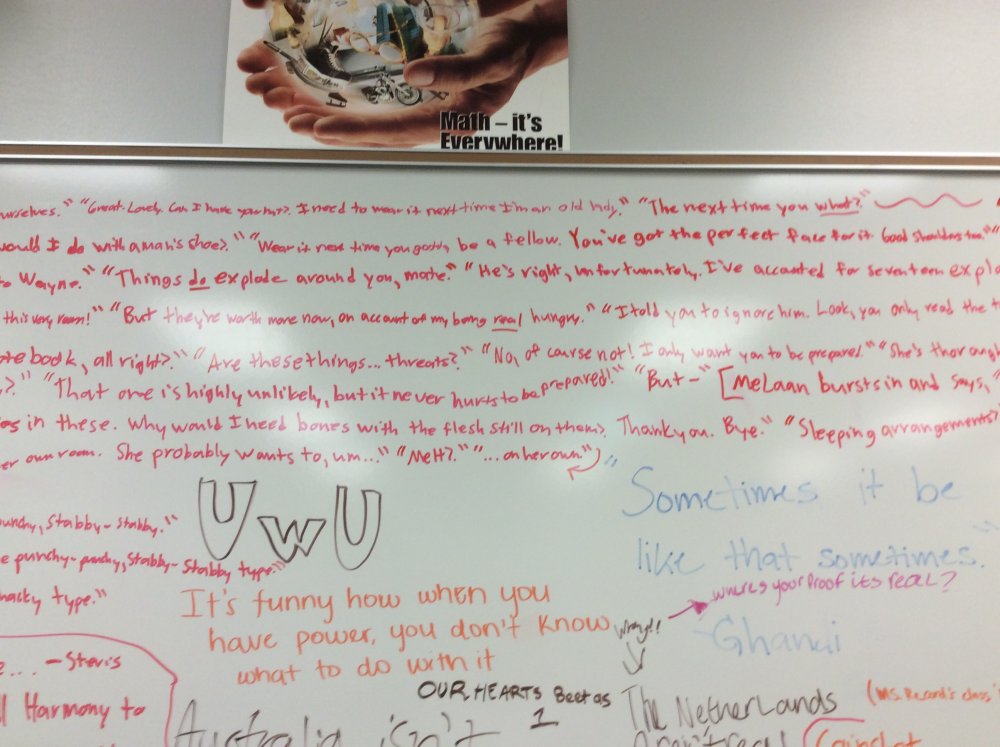 Math – it's
Everywhere!
ourselves." "Great. Lovely. Can I have your hat?. I need to wear it next time I'm an old lady." "The next time you what?."
would I do with a man's shoe?." "Wear it next time you gotta be a fellow. You've got the perfect face for it. Good shoulders too."
to Wayne." "Things do explode around you, mate." "He's right, unfortunately, I've accounted for seventeen explo
this very room!" "But they're worth more now, on account of my being real hungry." "I told you to ignore him. Look, you only read the t
otebook, all right?." "Are these things... threats?" "No, of course not! I only want you to be prepared." "She's thorough
?" "That one is highly unlikely, but it never hurts to be prepared!" "But-" [MeLaan bursts in and says, "
in these. Why would I need bones with the flesh still on them?. Thank you. Bye." "Sleeping arrangements?
er own room. She probably wants to, um..." "Melt?." "...on her own."
punchy, Stabby-stabby."
UwU
"Sometimes it be
like that sometimes."
e punchy-punchy, Stabby-Stabby type."
whacky type."
where's your proof its real?
It's funny how when you
have power, you don't know
what to do with it
Wrong!!
-Ghandi
... -Steris
l Harmony to
OUR HEARTS Beet as
1
The Netherlands
(Ms. Record's class
Australia isn't
Aren't real